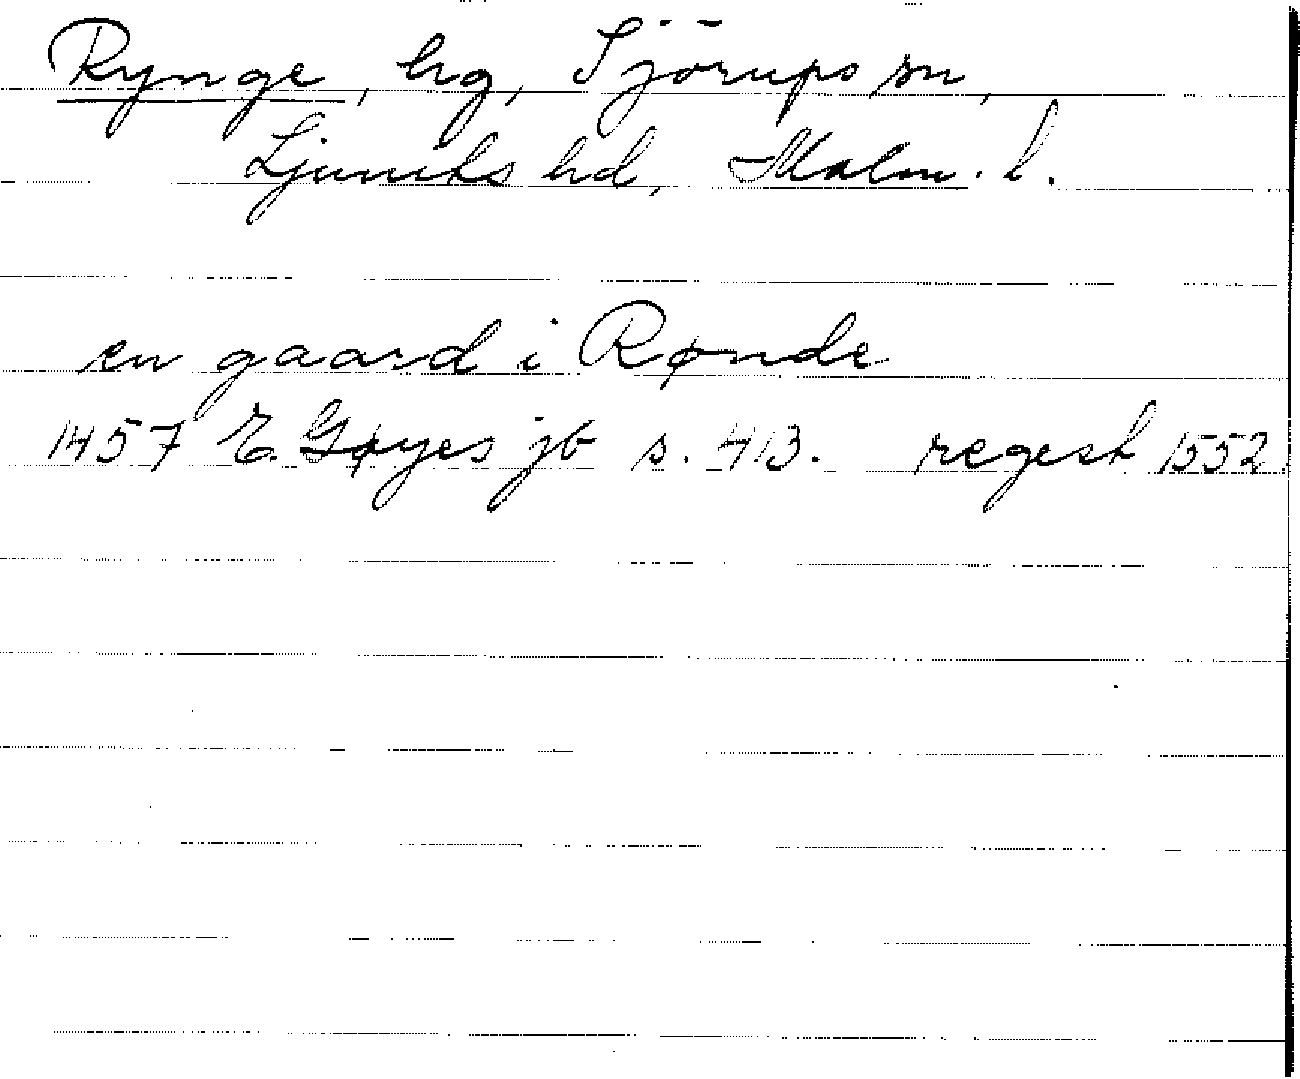 Rynge, hg, Sjörups sn,
Ljunits hd, Malm. l.
en gaard i Rønde
1457 E. Gøyes jb s. 413. regest 1552.